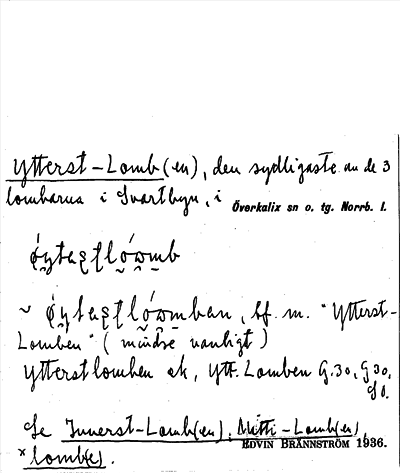 Ytterst-Lomb(en), den sydligaste av de 3
lombarna i Svartbyn, i
Överkalix sn o. tg. Norrb. l.
ǿytaʂʈló̱ω̱mb
~ ǿytaʂʈló̱ω̱mban, bf. m. "Ytterst-
Lomben" (mindre vanligt)
Ytterstlomben ek, Ytt. Lomben G.30, G 30,
Se Innerst-Lomb(en), Mitti-Lomb(en),
EDVIN BRÄNNSTRÖM 1936.
*lomb(e).